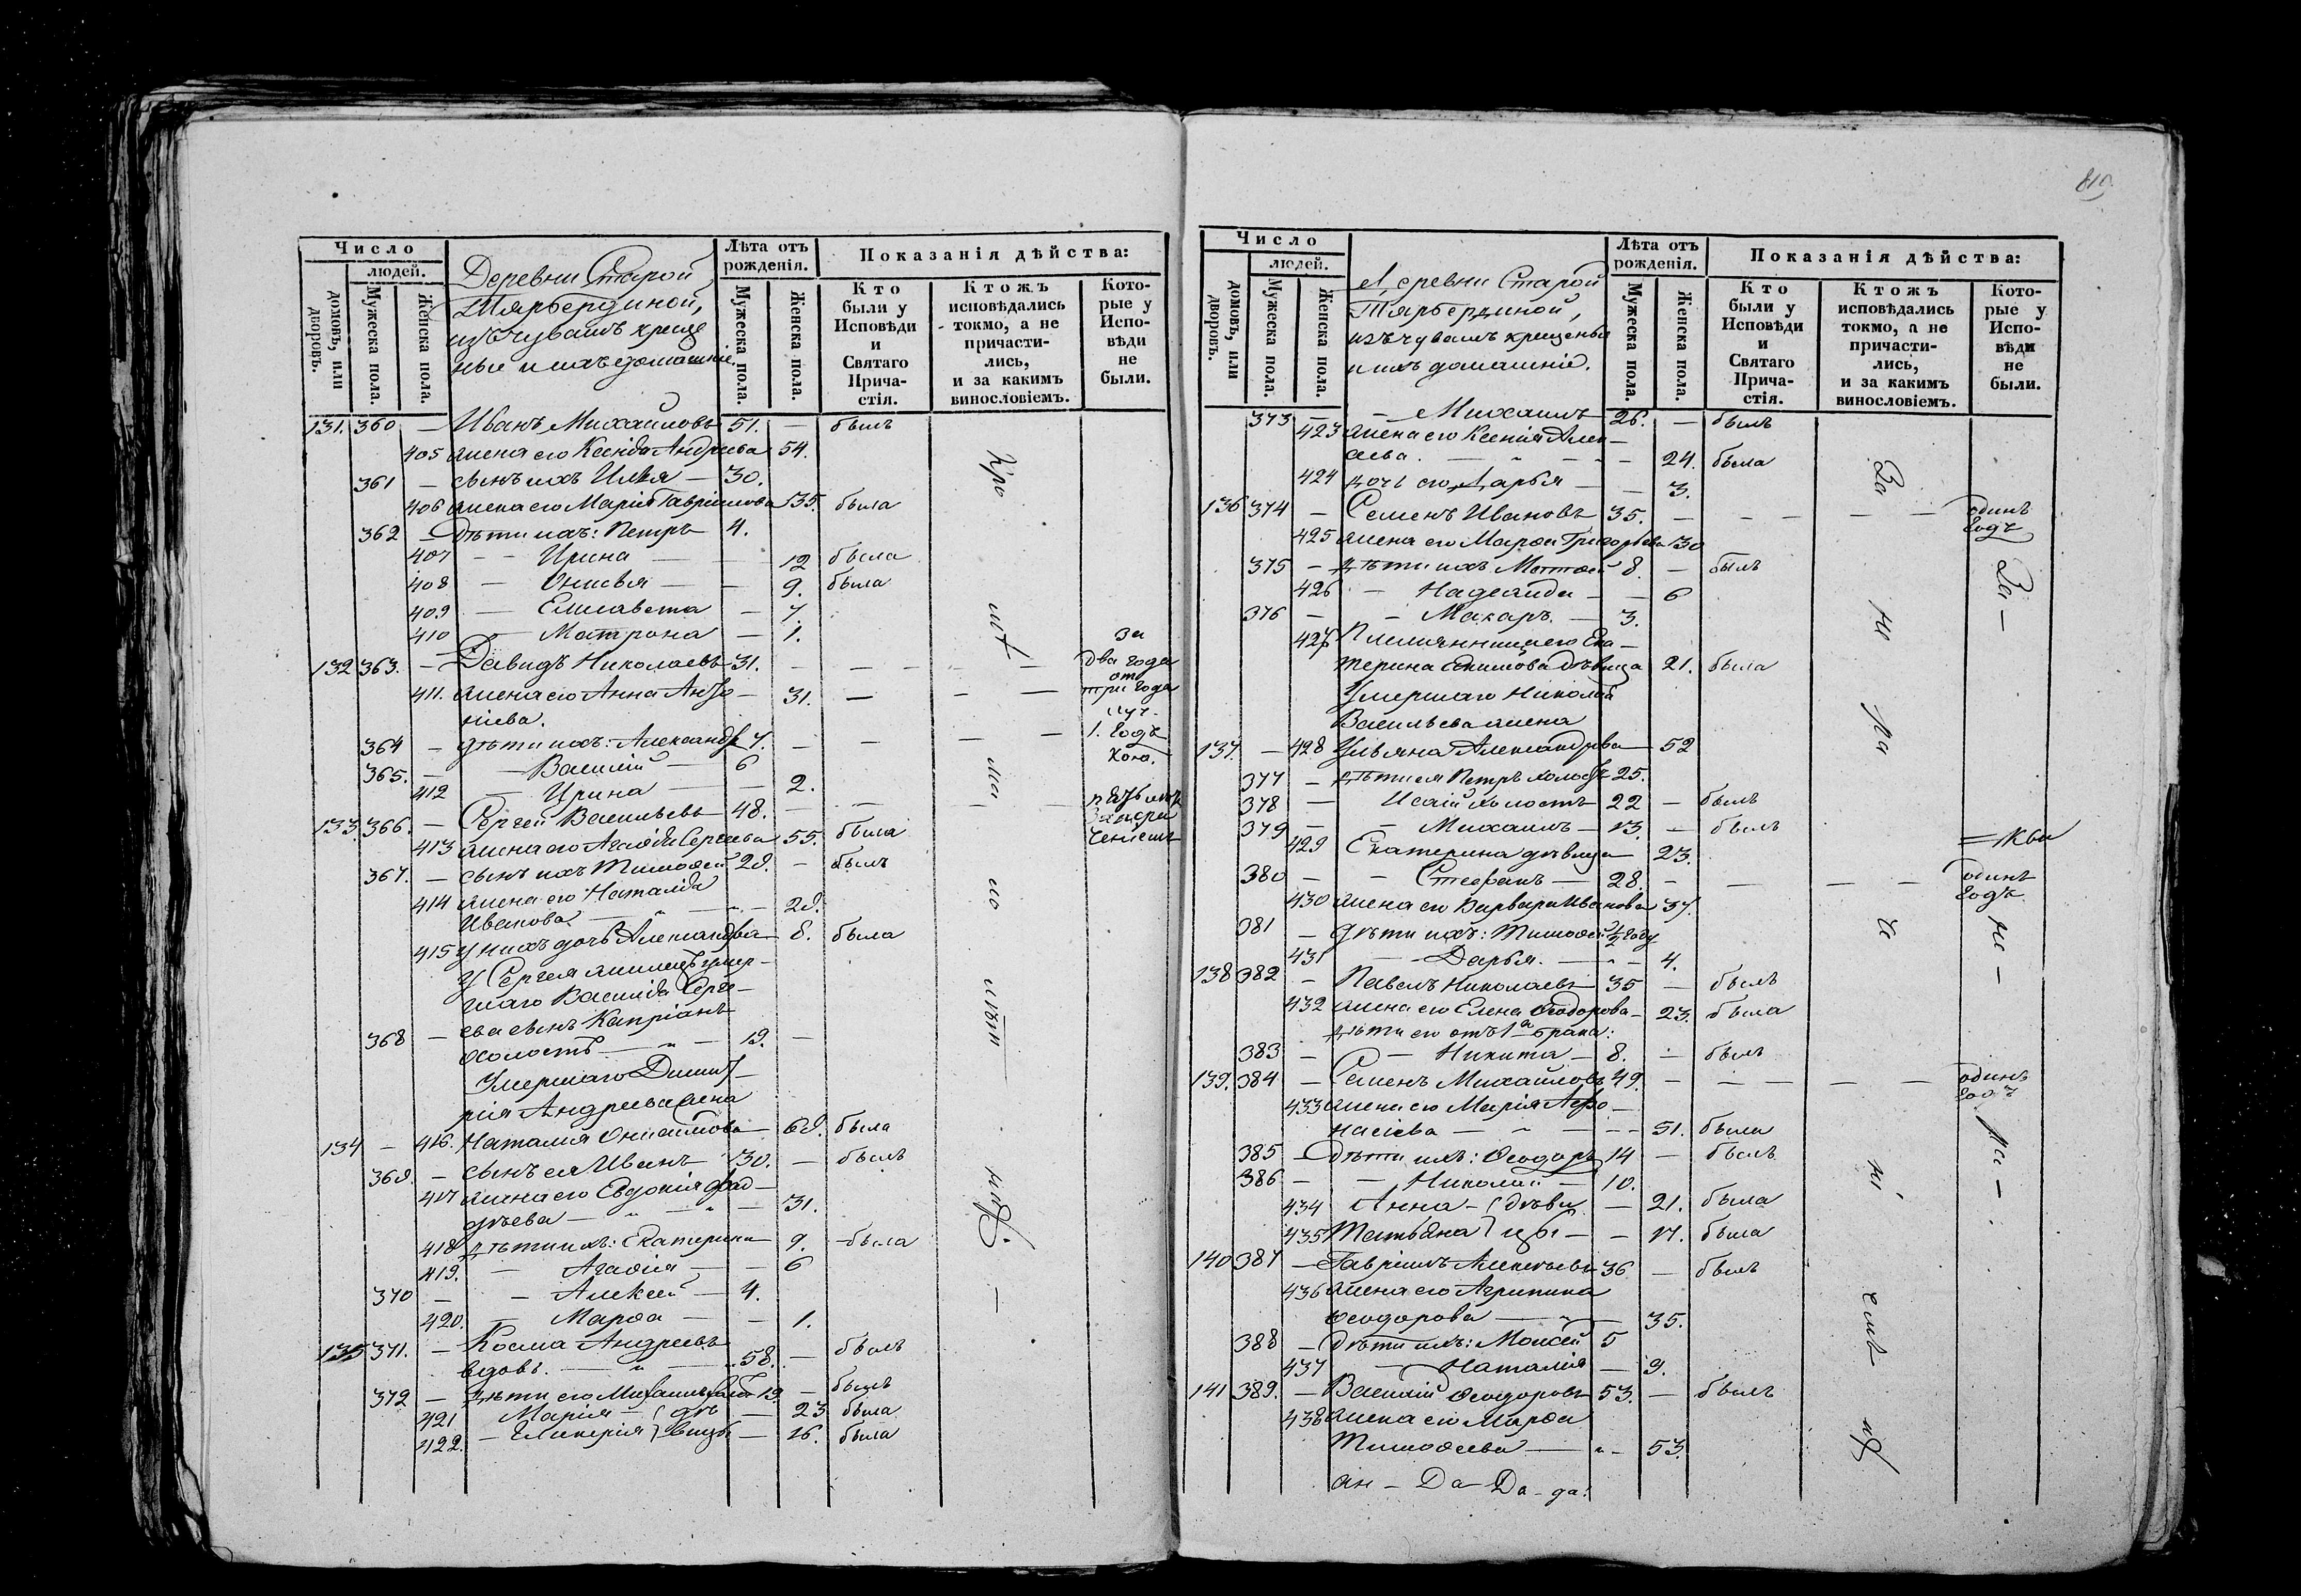 819
Число
людей.
домовъ, или дворовъ.
Мужеска пола.
Женска пола.
Деревни Старой
Тярьбердиной,
изъ чувашъ креще
ные и ихъ домашніе.
Лѣта отъ рожденія.
Мужеска пола.
Женска пола.
Показанія дѣйства:
Кто были у Исповѣди и Святаго Причастія.
Ктожъ исповѣдались токмо, а не причастились, и за какимъ винословіемъ.
Которые у Исповѣди не были.
131. 360 — Иванъ Михаиловъ 51. — былъ
405 жена его Ксенія Андреева 54.
361 — сынъ ихъ Илья — 30.
406 жена его Марія Гавриилова 35. была
362 — дѣти ихъ: Петръ 4.
407 — Ирина — 12 была
408 — Онисья — 9. была
409 — Елисавета — 7.
410 — Матрона — 1.
132 363. — Давидъ Николаевъ 31. — за два года
411. жена его Анна Анто- 31. — три года
ніева.
364 — дѣти ихъ: Александръ 7. — 1. годъ
365. — Василій — 6
412 — Ирина — 2.
133. 366. — Сергей Васильевъ 48. —
413 жена его Агафія Сергеева 55. была
367. — сынъ ихъ Тимофей 28. — былъ
414 жена его Наталія
Иванова — 28.
415 у нихъ дочь Александра — 8. была
У Сергея
шаго Василія Серге-
ева сынъ Кипріанъ
368 — холостъ — 19. —
Умершаго Димит-
рія Андреева жена
134 — 416. Наталия — 68. была
369 — сынъ ея Иванъ 30. — былъ
417 жена его Евдокія Фад-
дѣева — 31.
418 дѣти ихъ: Екатерина 9. была
419. — Агафія — 6
370 — Алексей — 4.
420. — Марфа — 1.
135 371. — Косма Андреевъ
вдовъ. — 58. — былъ
372 — Дѣти его Михаилъ 19. — былъ
421 Марія — дѣ — 23 была
422. — Гликерія вицы — 16. была
Число
людей.
домовъ, или дворовъ.
Мужеска пола.
Женска пола.
Деревни Старой
Тярьбердиной,
изъ чувашъ крещены
и ихъ домашніе.
Лѣта отъ рожденія.
Мужеска пола.
Женска пола.
Показанія дѣйства:
Кто были у Исповѣди и Святаго Причастія.
Ктожъ исповѣдались токмо, а не причастились, и за какимъ винословіемъ.
Которые у Исповѣди не были.
373 — — Михаилъ 26. — былъ
423 жена его Ксенія Алек-
сеева. — 24. была
424 дочь его Дарья — 3.
136 374 — Семенъ Ивановъ 35. — одинъ годъ
425 жена его Марфа Григорьева 30
375 — дѣти ихъ Матфей 8. — былъ
426 — Надежда — 6
376 — Макаръ. — 3.
427 Племянница его Ека-
терина дѣвица 21. была
Умершаго Николая
Васильева жена
137. — 428 Ульяна Александрова — 52
377 — дѣти ея Петръ холостъ 25.
378 — Исаій холостъ 22 — былъ
379 — Михаилъ — 13. — былъ
429 Екатерина дѣвица — 23.
380 — Стефанъ — 28. — одинъ годъ
430 жена его Варвара Иванова 37.
381 — дѣти ихъ: Тимофей ½ году
431 — Дарья. — 4.
138 382 — Павелъ Николаевъ 35 — былъ
432 жена его Елена Феодорова — 23. была
дѣти его отъ 1го брака:
383 — — Никита — 8. — былъ
139. 384 — Семенъ Михайловъ 49. — одинъ годъ
433 жена его Марія Афо-
насіева — 51. была
385 — дѣти ихъ: Феодоръ 14 — былъ
386 — — Николай — 10.
434 Анна — дѣви — 21. была
435 Татьяна цы — 17. была
140 387 — Гавріилъ Алексеевъ 36 — былъ
436 жена его Агрипина
Феодорова — 35.
388 — дѣти ихъ: Моисей 5
437 — Наталия — 9.
141 389. — Василій Феодоровъ 53. — былъ
438 жена его Марфа
Тимофеева — 53